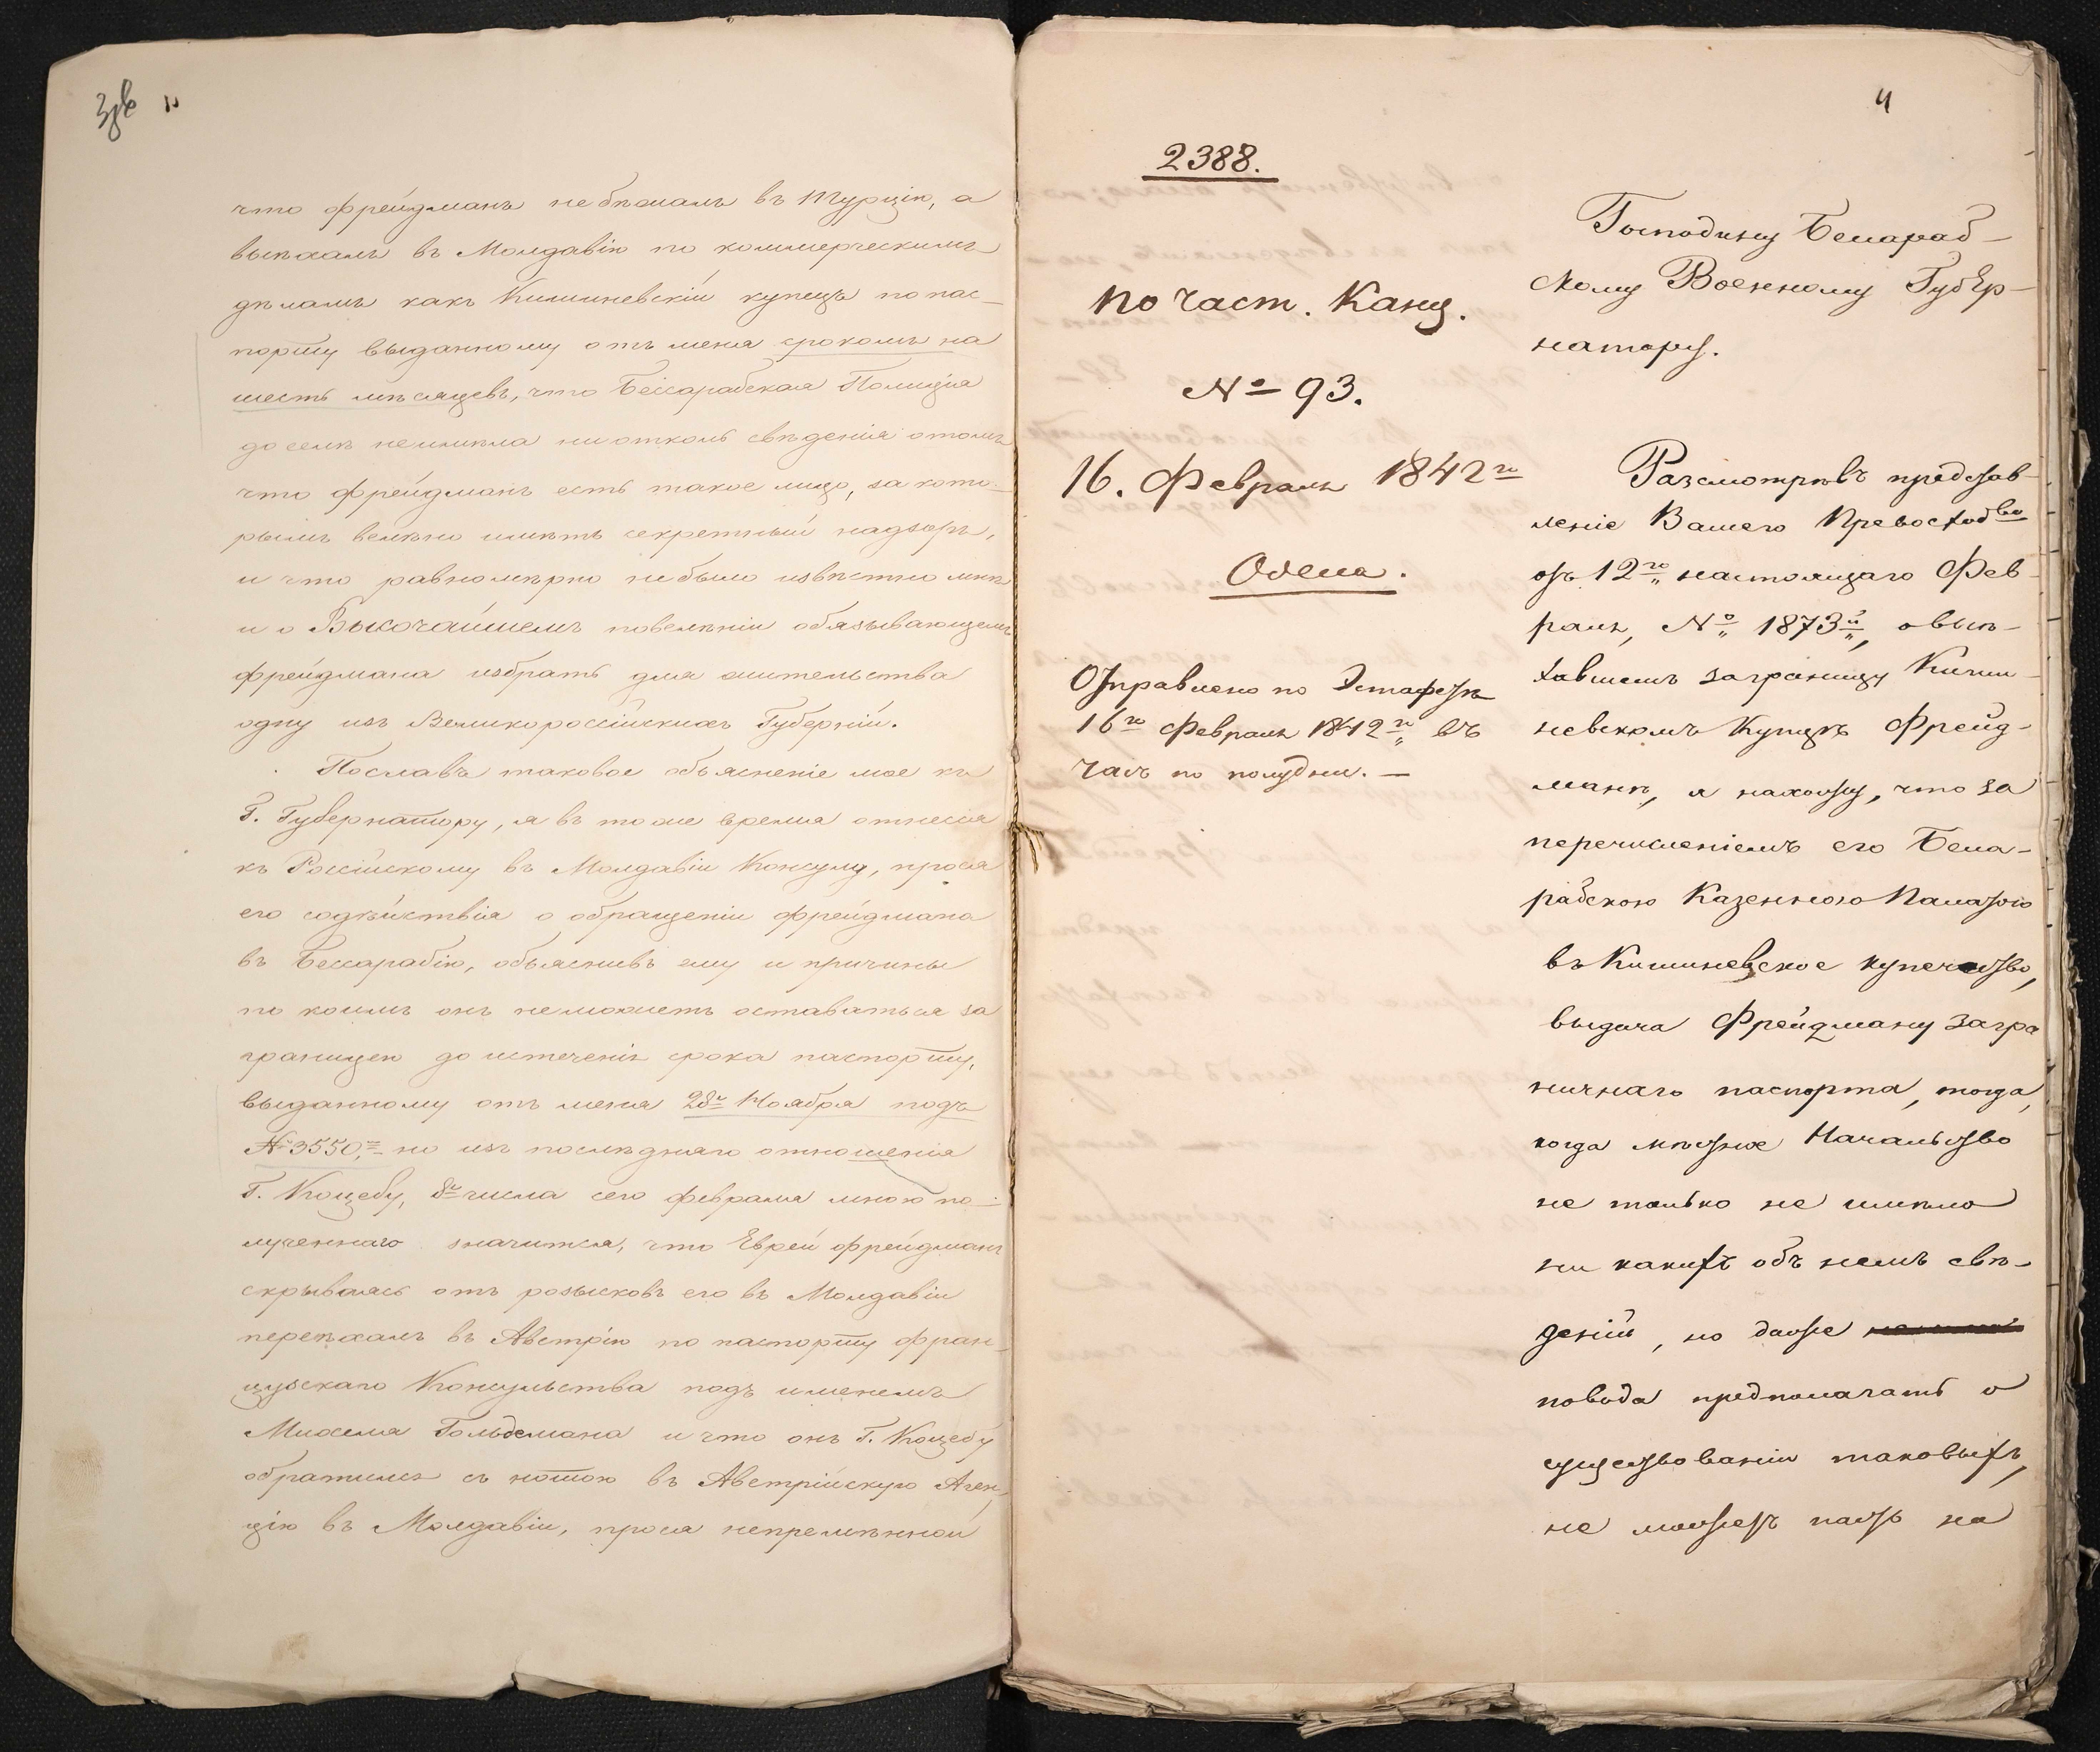 что Фрейдманъ небѣжалъ въ Турцію, а
выѣхалъ въ Молдавію по коммерческимъ
дѣламъ какъ Кишиневскій купецъ по пас-
порту выданному отъ меня срокомъ на
шесть мѣсяцевъ, что Бессарабская Полиція
доселѣ неимѣла ниотколь свѣденія отомъ
что Фрейдманъ есть такое лицо, за кото-
рымъ велѣно имѣть секретный надзоръ,
и что равномѣрно небыло извѣстно мнѣ
и о Высочайшемъ повелѣніи обязывающемъ
Фрейдмана избрать для жительства
одну изъ Великороссійскихъ Губерній.
Пославъ таковое объясненіе мое къ
Г. Губернатору, я въ тоже время отнесся
къ Россійскому въ Молдавіи Консулу, прося
его содѣйствія о обращеніи Фрейдмана
въ Бессарабію, объяснивъ ему и причины
по коимъ онъ неможетъ оставаться за
границею до истеченія срока паспорту,
выданному отъ меня 28го Ноября подъ
№ 3550, но изъ послѣдняго отношенія
Г. Коцебу, 8го числа сего февраля мною по-
лученнаго значится, что Еврей Фрейдманъ
скрываясь отъ розысковъ его въ Молдавіи
переѣхалъ въ Австрію по паспорту Фран-
цузскаго Консульства подъ именемъ
Михеля Гольдемана и что онъ Г. Коцебу
обратился съ нотою въ Австрійскую Аген-
цію въ Молдавіи, прося непремѣнной
4
2388.
по част. Канц.
№ 93.
16. Февраля 1842го
Одесса.
Отправлено по Эстафетѣ
16го Февраля 1842го въ
часъ по полудни. —
Господину Бессараб-
скому Военному Губер-
натору.
Разсмотрѣвъ представ-
леніе Вашего Превосходва
отъ 12го настоящаго Фев-
раля, № 1873й, о выѣ-
хавшемъ заграницу Киши-
невскомъ Купцѣ Фрейд-
манѣ, я нахожу, что за
перечисленіемъ его Бесса-
рабскою Казенною Палатою
въ Кишиневское купечество,
выдача Фрейдману загра
ничнаго паспорта, тогда,
когда мѣстное Начальство
не только не имѣло
ни какихъ объ немъ свѣ-
деній, но даже
повода предполагать о
существованіи таковыхъ,
не можетъ пасть на